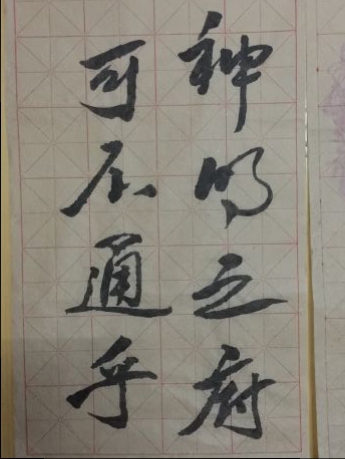 神明之府
可不通乎